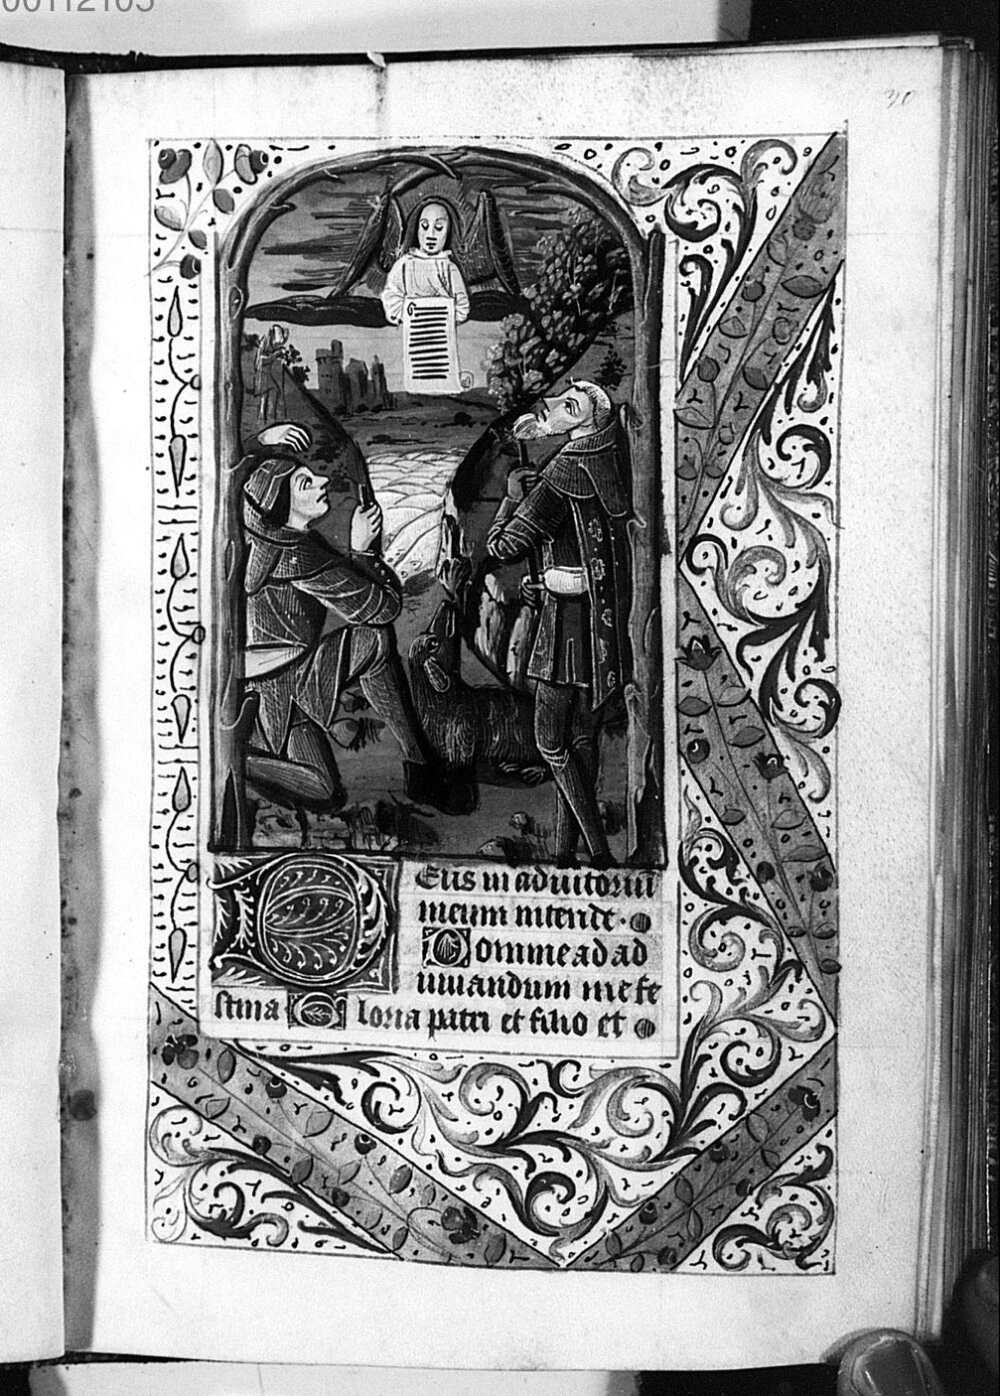 00112105
30
Eus in adiutoriū
meum intende.
Domine ad ad
iuuandum me fe
stina Gloria patri et filio et